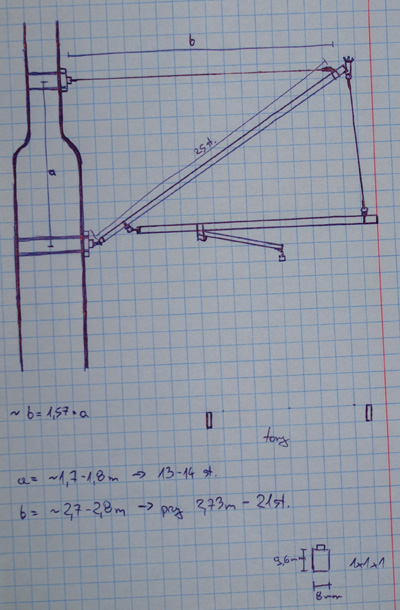 b
25 st.
a
~ b = 1,57 · a
tory
a = ~1,7-1,8m → 13-14 st.
b = ~2,7-2,8m → przy 2,73m - 21 st.
9,6mm
1x1x1
8mm